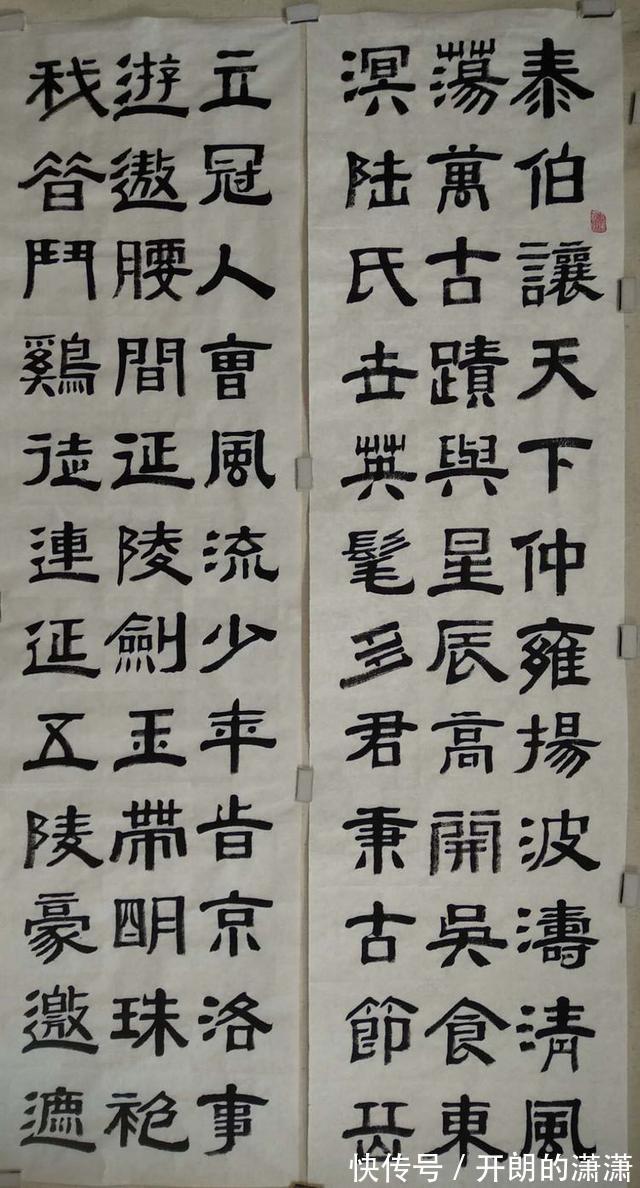 泰伯讓天下仲雍揚波濤清風
蕩萬古蹟與星辰高開吳食東
溟陸氏世英髦多君秉古節岳
立冠人曹風流少年旹京洛事
遊遨腰間延陵劍玉帶明珠袍
我昔鬥鷄徒連延五陵豪邀遮
快传号 / 开朗的潇潇